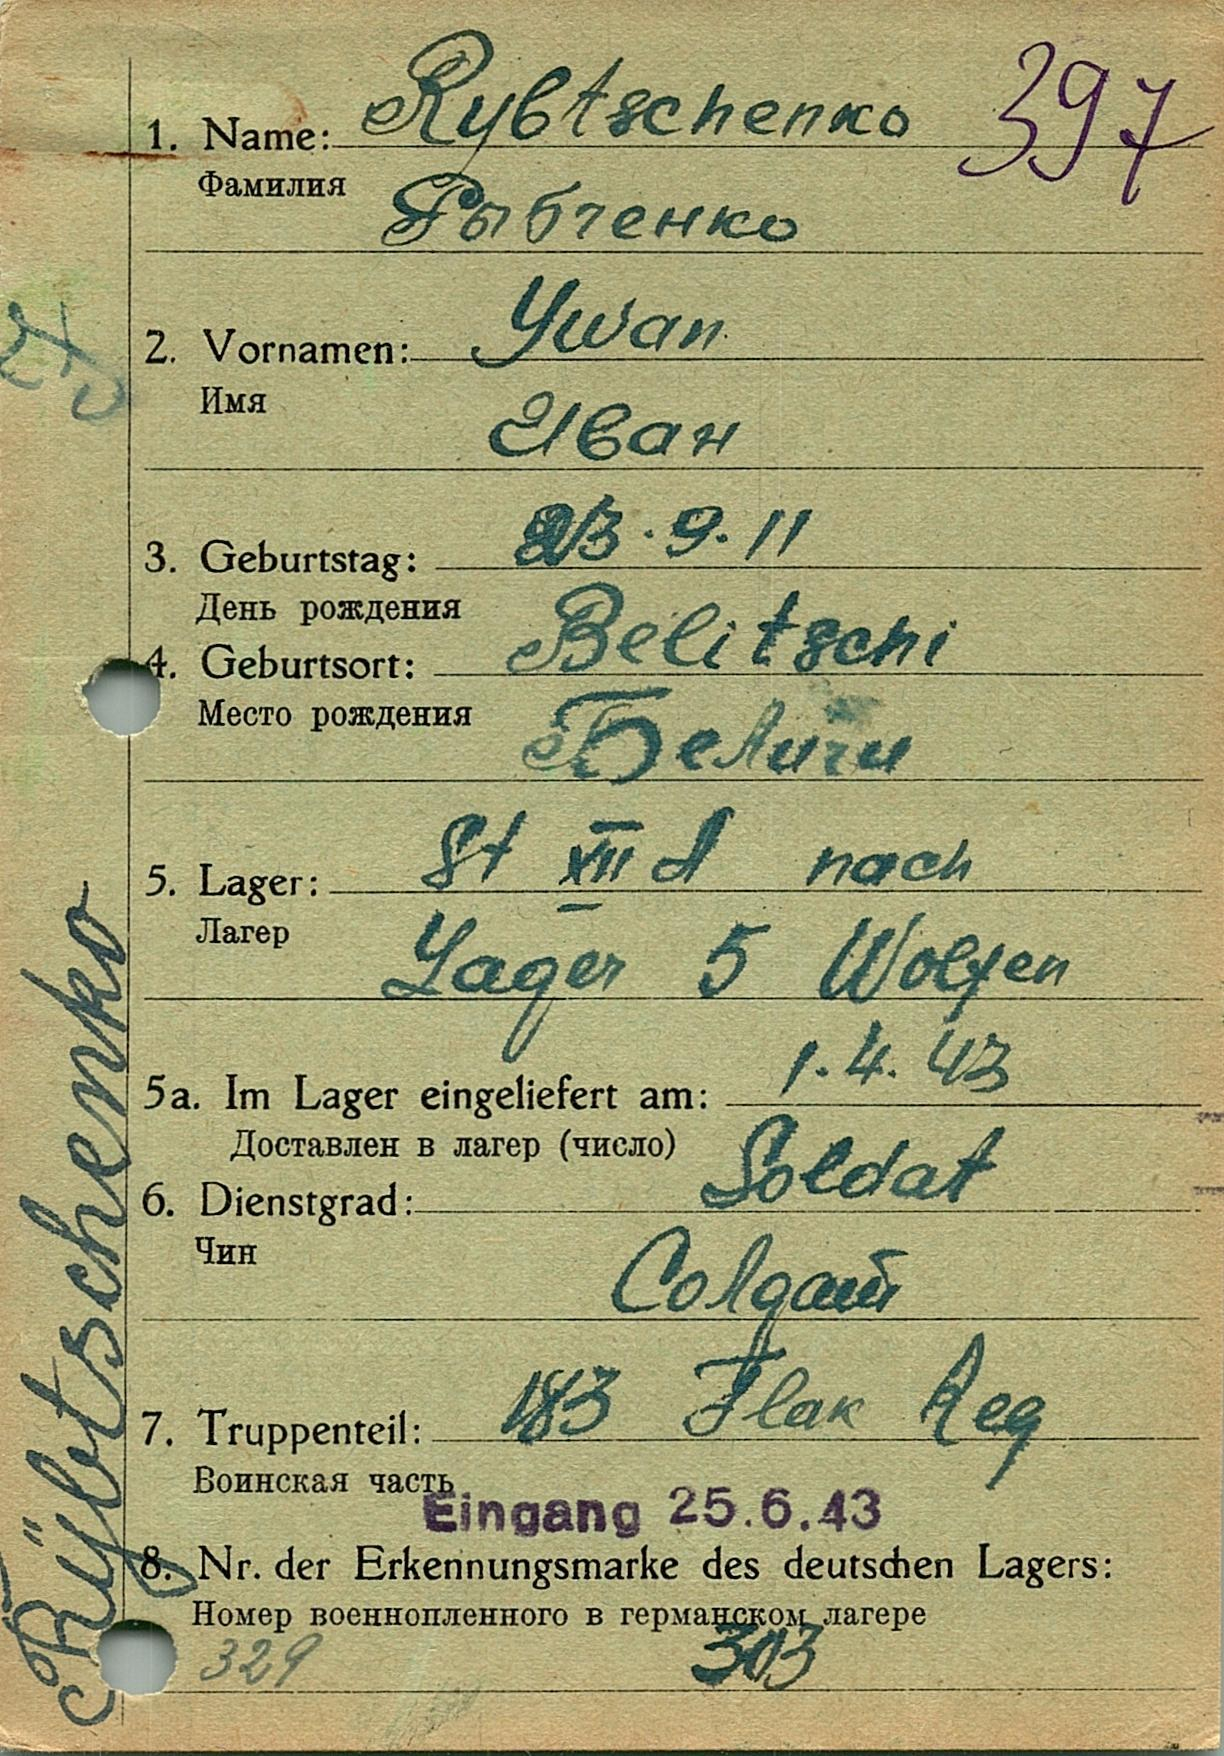 1. Name: Rybtschenko 397
Фамилия
Рыбченко
2. Vornamen: Ywan
Имя
Иван
3. Geburtstag: 23.9.11
День рождения
4. Geburtsort: Belitschi
Место рождения
Беличи
5. Lager: St XII A nach
Лагер
Lager 5 Wolfen
5a. Im Lager eingeliefert am: 1.4.43
Доставлен в лагер (число)
6. Dienstgrad: Soldat
Чин
Солдат
7. Truppenteil: 183 Flak Reg
Воинская часть
Eingang 25.6.43
8. Nr. der Erkennungsmarke des deutschen Lagers:
Номер военнопленного в германском лагере
329 303
Rÿbtschenko